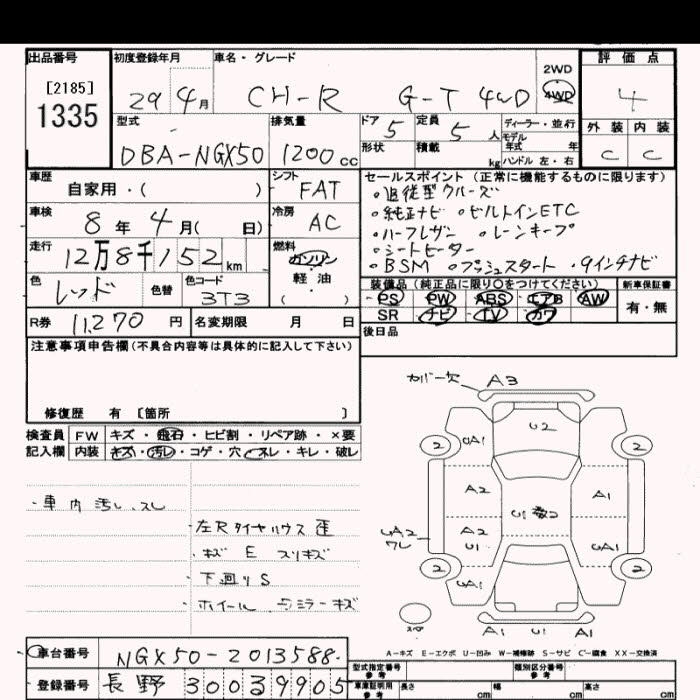 出品番号
[2185]
1335
初度登録年月
29年4月
車名・グレード
CH-R G-T 4WD
2WD
4WD
評価点
4
外装 内装
C C
型式
DBA-NGX50
排気量
1200cc
ドア
5
形状
定員
5人
積載
kg
ディーラー・並行
モデル年式 年
ハンドル 左・右
車歴
自家用・( )
シフト
FAT
車検
8年4月( 日)
冷房
AC
走行
12万8千152km
燃料
ガソリン
軽油
( )
色
レッド
色替
色コード
3T3
R券
11,270円
名変期限 月 日
セールスポイント(正常に機能するものに限ります)
・追従型クルーズ
・純正ナビ ・ビルトインETC
・ハーフレザー ・レーンキープ
・シートヒーター
・BSM ・プッシュスタート ・9インチナビ
装備品(純正品に限り○をつけてください)
PS PW ABS エアB AW
SR ナビ TV カワ
新車保証書
有・無
後日品
注意事項申告欄(不具合内容等は具体的に記入して下さい)
修復歴 有 [箇所 ]
検査員記入欄
FW キズ・飛石・ヒビ割・リペア跡・×要
内装 キズ・汚レ・コゲ・穴・スレ・キレ・破レ
・車内汚レ、スレ
・左Rタイヤハウス歪
・キズ E スリキズ
・下廻りS
・ホイール キズ
カバー欠 A3
U2
UA1
2
2
A2
A1
U1 数2
UA2
ワレ
A2
U1
UA1
2
2
UA1
スペ
A1 U1 A1
A-キズ E-エクボ U-凹み W-補修跡 S-サビ C-腐食 XX-交換済
車台番号
NGX50-2013588
登録番号
長野 300 3 9905
型式指定番号
参考
類別区分番号
参考
車庫証明用
参考
長さ cm
幅 cm
高さ cm